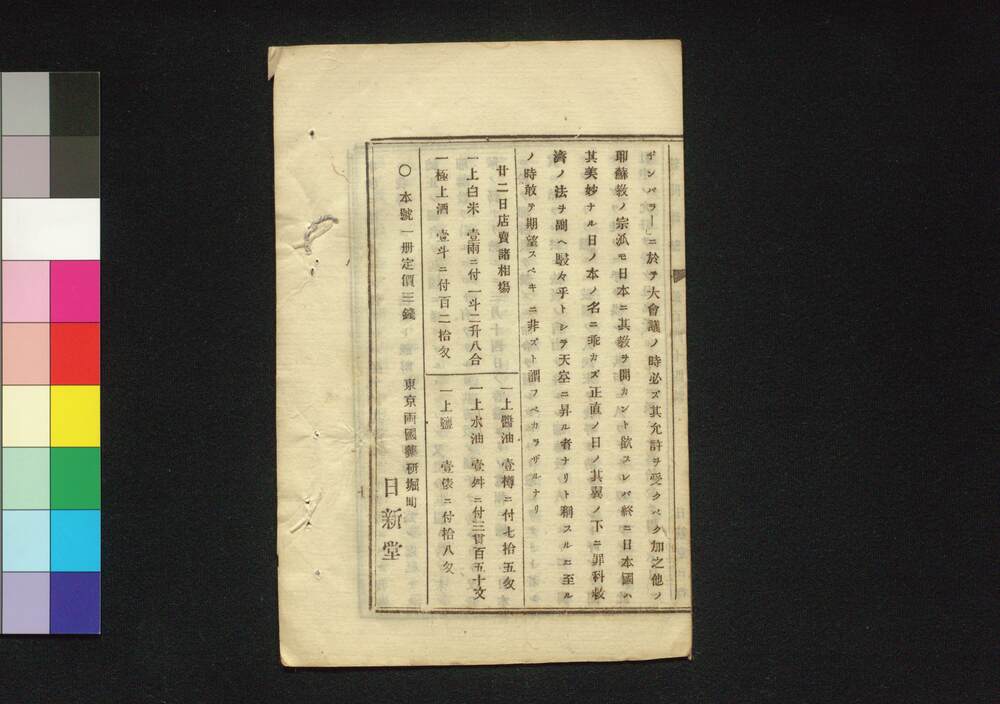 ギンバラー」ニ於テ大會議ノ時必ズ其允許ヲ受クベク加之他ノ
耶蘇教ノ宗派モ日本ニ其教ヲ開カント欲スレバ終ニ日本國ハ
其美妙ナル日ノ本ノ名ニ乖カズ正直ノ日ノ其翼ノ下ニ罪科救
濟ノ法ヲ副ヘ駸々乎トシテ天空ニ昇ル者ナリト稱スルニ至ル
ノ時敢テ期望スベキニ非ズト謂フベカラザルナリ
廿二日店賣諸相塲
一上白米 壹兩ニ付一斗二升八合
一極上酒 壹斗ニ付百二拾匁
一上醬油 壹樽ニ付七拾五匁
一上水油 壹舛ニ付三貫百五十文
一上鹽 壹俵ニ付拾八匁
○本號一册定價三錢
東京兩國藥研堀町
日新堂